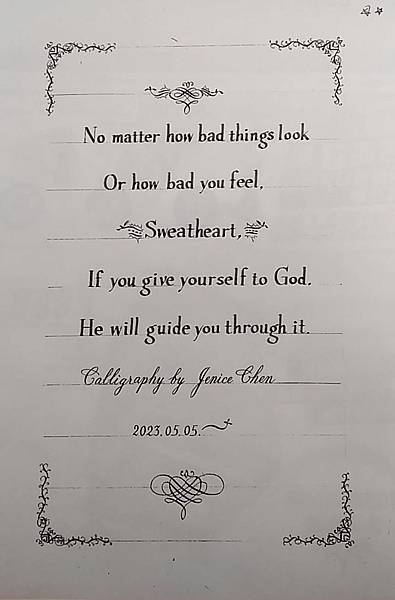 No matter how bad things look
Or how bad you feel,
Sweatheart,
If you give yourself to God.
He will guide you through it.
Calligraphy by Jenice Chen
2023.05.05.